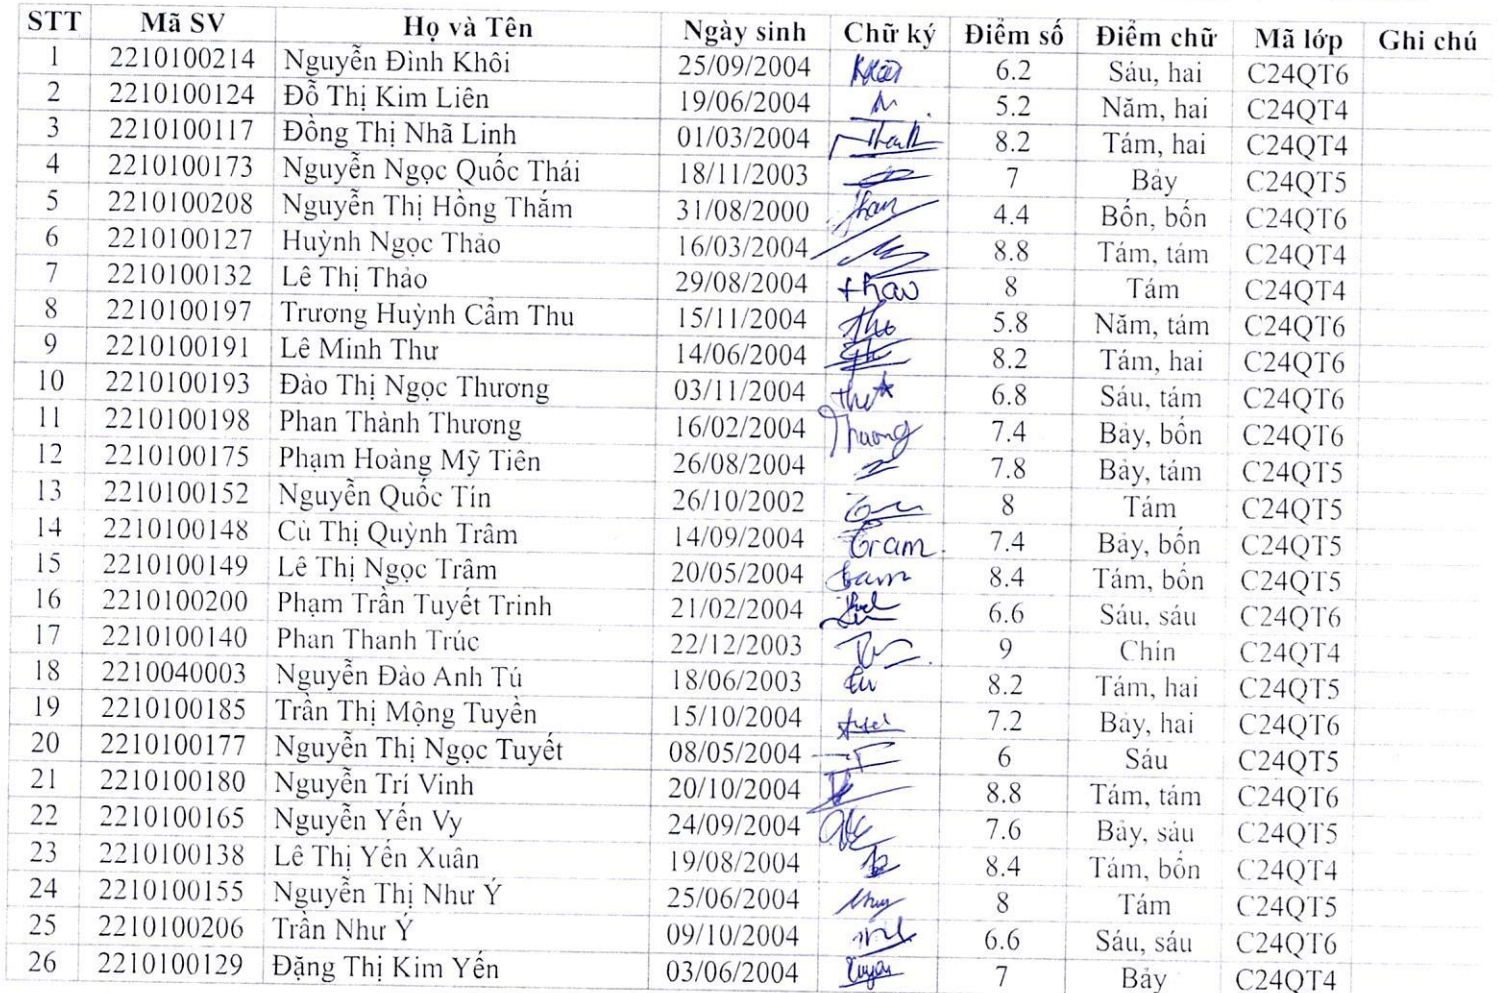 STT Mã SV Họ và Tên Ngày sinh Chữ ký Điểm số Điểm chữ Mã lớp Ghi chú
1 2210100214 Nguyễn Đình Khôi 25/09/2004 6.2 Sáu, hai C24QT6
2 2210100124 Đỗ Thị Kim Liên 19/06/2004 5.2 Năm, hai C24QT4
3 2210100117 Đồng Thị Nhã Linh 01/03/2004 8.2 Tám, hai C24QT4
4 2210100173 Nguyễn Ngọc Quốc Thái 18/11/2003 7 Bảy C24QT5
5 2210100208 Nguyễn Thị Hồng Thắm 31/08/2000 4.4 Bốn, bốn C24QT6
6 2210100127 Huỳnh Ngọc Thảo 16/03/2004 8.8 Tám, tám C24QT4
7 2210100132 Lê Thị Thảo 29/08/2004 thảo 8 Tám C24QT4
8 2210100197 Trương Huỳnh Cẩm Thu 15/11/2004 5.8 Năm, tám C24QT6
9 2210100191 Lê Minh Thư 14/06/2004 8.2 Tám, hai C24QT6
10 2210100193 Đào Thị Ngọc Thương 03/11/2004 6.8 Sáu, tám C24QT6
11 2210100198 Phan Thành Thương 16/02/2004 Thương 7.4 Bảy, bốn C24QT6
12 2210100175 Phạm Hoàng Mỹ Tiên 26/08/2004 7.8 Bảy, tám C24QT5
13 2210100152 Nguyễn Quốc Tín 26/10/2002 8 Tám C24QT5
14 2210100148 Cù Thị Quỳnh Trâm 14/09/2004 Tram 7.4 Bảy, bốn C24QT5
15 2210100149 Lê Thị Ngọc Trâm 20/05/2004 8.4 Tám, bốn C24QT5
16 2210100200 Phạm Trần Tuyết Trinh 21/02/2004 6.6 Sáu, sáu C24QT6
17 2210100140 Phan Thanh Trúc 22/12/2003 9 Chín C24QT4
18 2210040003 Nguyễn Đào Anh Tú 18/06/2003 8.2 Tám, hai C24QT5
19 2210100185 Trần Thị Mộng Tuyền 15/10/2004 7.2 Bảy, hai C24QT6
20 2210100177 Nguyễn Thị Ngọc Tuyết 08/05/2004 6 Sáu C24QT5
21 2210100180 Nguyễn Trí Vinh 20/10/2004 8.8 Tám, tám C24QT6
22 2210100165 Nguyễn Yến Vy 24/09/2004 7.6 Bảy, sáu C24QT5
23 2210100138 Lê Thị Yến Xuân 19/08/2004 8.4 Tám, bốn C24QT4
24 2210100155 Nguyễn Thị Như Ý 25/06/2004 8 Tám C24QT5
25 2210100206 Trần Như Ý 09/10/2004 6.6 Sáu, sáu C24QT6
26 2210100129 Đặng Thị Kim Yến 03/06/2004 7 Bảy C24QT4